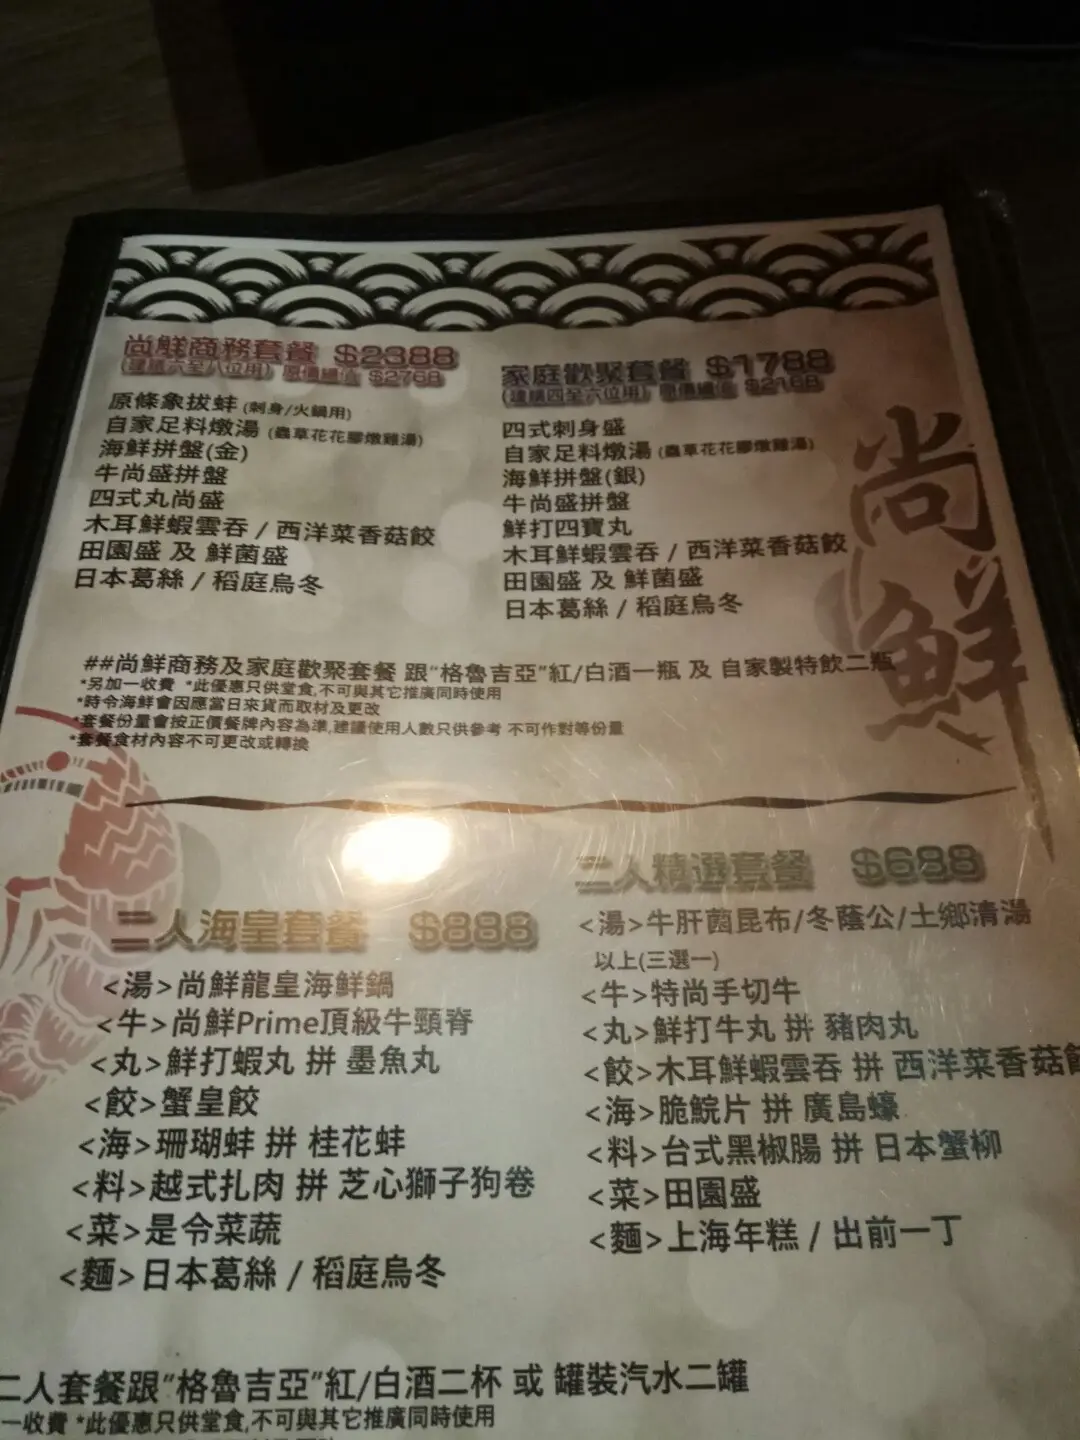 尚鮮商務套餐 $2388
(建議六至八位用) 原價總值 $2768
原條象拔蚌 (刺身/火鍋用)
自家足料燉湯 (蟲草花花膠燉雞湯)
海鮮拼盤(金)
牛尚盛拼盤
四式丸尚盛
木耳鮮蝦雲吞 / 西洋菜香菇餃
田園盛 及 鮮菌盛
日本葛絲 / 稻庭烏冬
家庭歡聚套餐 $1788
(建議四至六位用) 原價總值 $2168
四式刺身盛
自家足料燉湯 (蟲草花花膠燉雞湯)
海鮮拼盤(銀)
牛尚盛拼盤
鮮打四寶丸
木耳鮮蝦雲吞 / 西洋菜香菇餃
田園盛 及 鮮菌盛
日本葛絲 / 稻庭烏冬
尚鮮
##尚鮮商務及家庭歡聚套餐 跟"格魯吉亞"紅/白酒一瓶 及 自家製特飲二瓶
*另加一收費 *此優惠只供堂食,不可與其它推廣同時使用
*時令海鮮會因應當日來貨而取材及更改
*套餐份量會按正價餐牌內容為準,建議使用人數只供參考 不可作對等份量
*套餐食材內容不可更改或轉換
二人海皇套餐 $888
<湯>尚鮮龍皇海鮮鍋
<牛>尚鮮Prime頂級牛頸脊
<丸>鮮打蝦丸 拼 墨魚丸
<餃>蟹皇餃
<海>珊瑚蚌 拼 桂花蚌
<料>越式扎肉 拼 芝心獅子狗卷
<菜>是令菜蔬
<麵>日本葛絲 / 稻庭烏冬
二人精選套餐 $688
<湯>牛肝菌昆布/冬蔭公/土鄉清湯
以上(三選一)
<牛>特尚手切牛
<丸>鮮打牛丸 拼 豬肉丸
<餃>木耳鮮蝦雲吞 拼 西洋菜香菇餃
<海>脆鯇片 拼 廣島蠔
<料>台式黑椒腸 拼 日本蟹柳
<菜>田園盛
<麵>上海年糕 / 出前一丁
二人套餐跟"格魯吉亞"紅/白酒二杯 或 罐裝汽水二罐
一收費 *此優惠只供堂食,不可與其它推廣同時使用